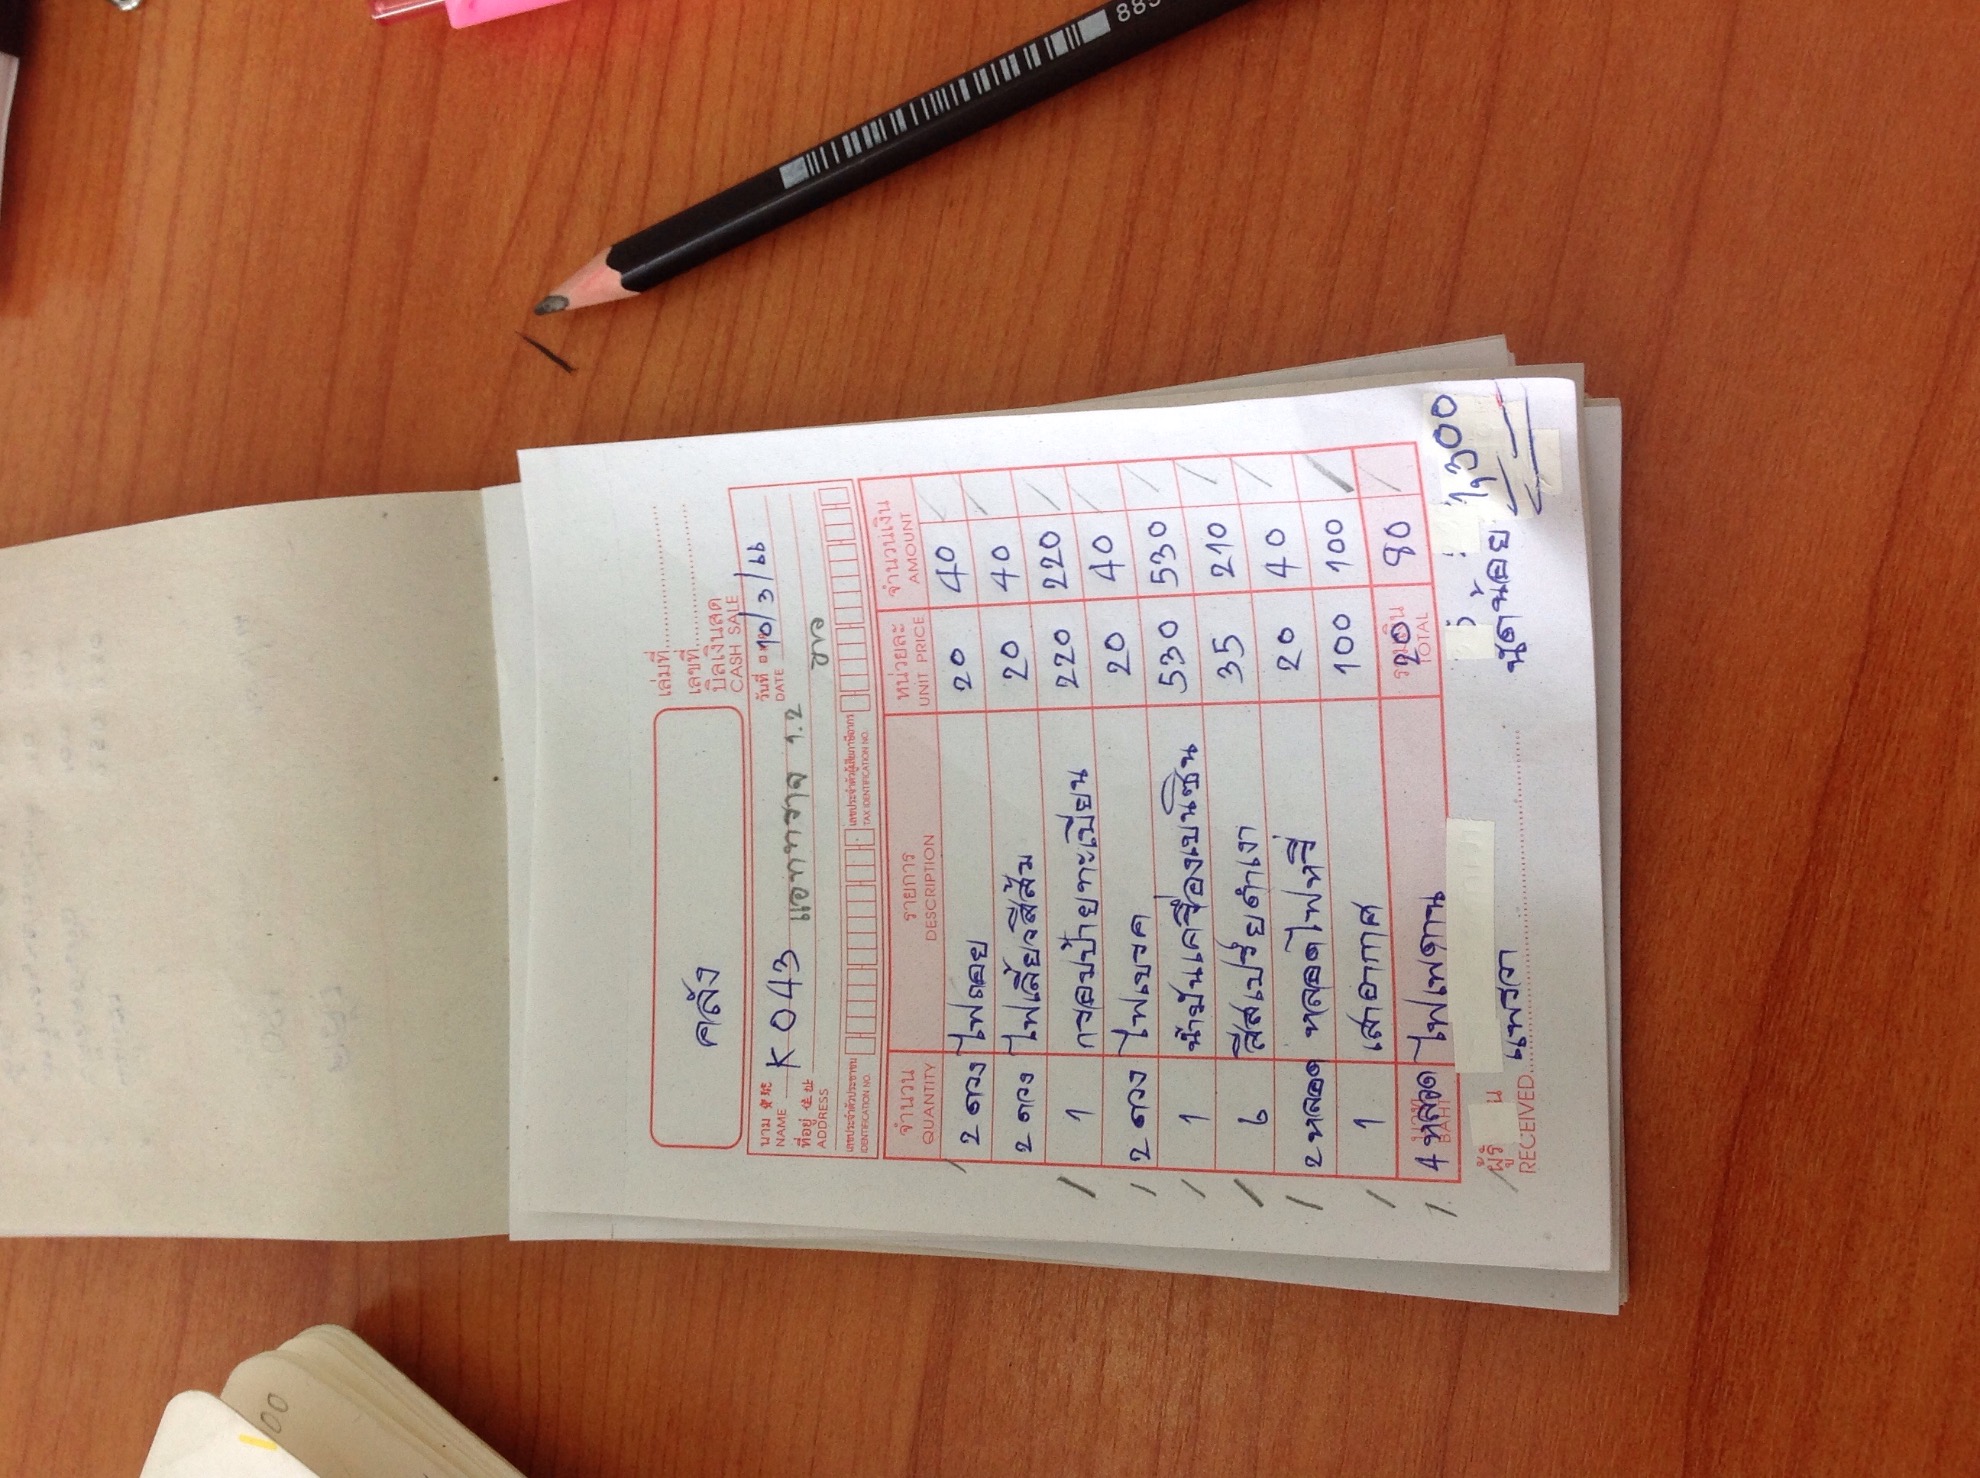 885
เล่มที่
เลขที่
บิลเงินสด
CASH SALE
คลัง
นาม
NAME K 043
วันที่
DATE 10/3/66
ที่อยู่
ADDRESS
1.2
เลขประจำตัวประชาชน
IDENTIFICATION NO.
เลขประจำตัวผู้เสียภาษีอากร
TAX IDENTIFICATION NO.
จำนวน รายการ หน่วยละ จำนวนเงิน
QUANTITY DESCRIPTION UNIT PRICE AMOUNT
2 ดวง ไฟถอย 20 40
2 ดวง ไฟเลี้ยวสีส้ม 20 40
1 กรอบป้ายทะเบียน 220 220
2 ดวง ไฟเบรค 20 40
1 น้ำมันเครื่องเบนซิน 530 530
6 สีสเปรย์ดำเงา 35 210
2 หลอด หลอดไฟหรี่ 20 40
1 เสาอากาศ 100 100
4 หลอด ไฟเพดาน 20 80
บาท
BAHT
รวมเงิน
TOTAL
1,300
RECEIVED แพรวา
นุดน้อย
100